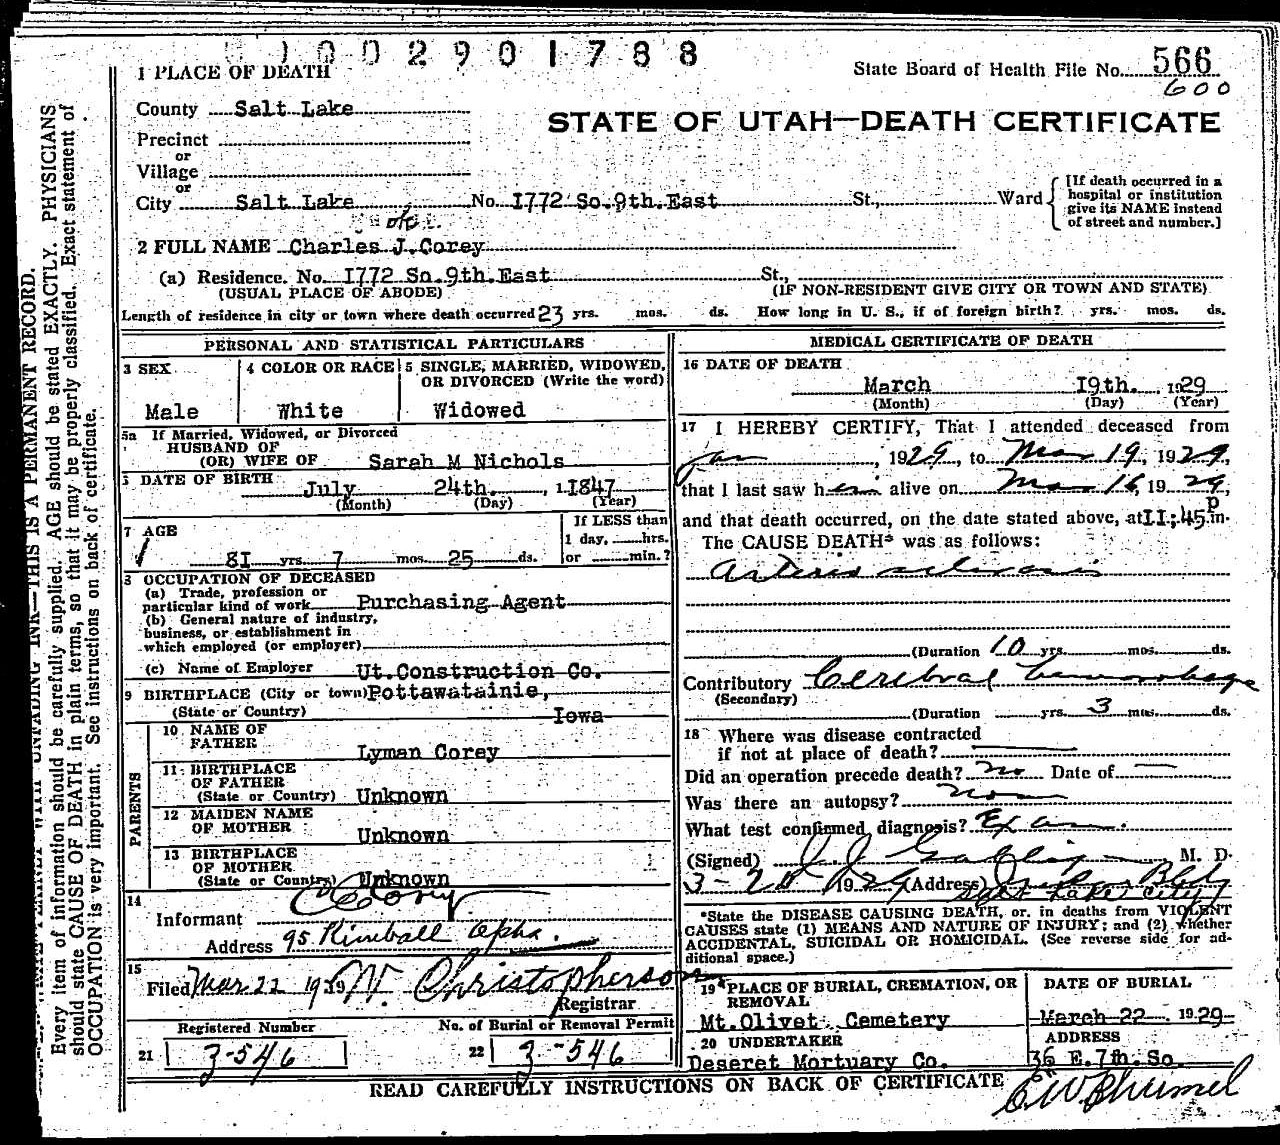 1002901788
1 PLACE OF DEATH
State Board of Health File No. 566
600
County Salt Lake
STATE OF UTAH—DEATH CERTIFICATE
Precinct
or
Village
or
City Salt Lake No. I772 So.9th.East St., Ward
[If death occurred in a
hospital or institution
give its NAME instead
of street and number.]
ok
2 FULL NAME Charles J.Corey
(a) Residence. No. I772 So.9th.East St.,
(USUAL PLACE OF ABODE) (IF NON-RESIDENT GIVE CITY OR TOWN AND STATE)
Length of residence in city or town where death occurred 23 yrs. mos. ds. How long in U. S., if of foreign birth? yrs. mos. ds.
PERSONAL AND STATISTICAL PARTICULARS
3 SEX
Male
4 COLOR OR RACE
White
5 SINGLE, MARRIED, WIDOWED,
OR DIVORCED (Write the word)
Widowed
5a If Married, Widowed, or Divorced
HUSBAND OF
(OR) WIFE OF Sarah M Nichols
DATE OF BIRTH July 24th. I847
(Month) (Day) (Year)
7 AGE
8I yrs. 7 mos. 25 ds.
If LESS than
1 day, hrs.
or min.?
8 OCCUPATION OF DECEASED
(a) Trade, profession or
particular kind of work Purchasing Agent
(b) General nature of industry,
business, or establishment in
which employed (or employer)
(c) Name of Employer Ut.Construction Co.
9 BIRTHPLACE (City or town) Pottawatainie,
(State or Country) Iowa
PARENTS
10 NAME OF
FATHER Lyman Corey
11 BIRTHPLACE
OF FATHER
(State or Country) Unknown
12 MAIDEN NAME
OF MOTHER Unknown
13 BIRTHPLACE
OF MOTHER
(State or Country) Unknown
14
Informant Corey
Address 95 Kimball Apts.
15
Filed Mar 22 1929 W. Christopherson
Registrar
Registered Number
21 3-546
No. of Burial or Removal Permit
22 3-546
MEDICAL CERTIFICATE OF DEATH
16 DATE OF DEATH
March I9th. 1929
(Month) (Day) (Year)
17 I HEREBY CERTIFY, That I attended deceased from
Jan, 1929, to Mar 19, 1929,
that I last saw him alive on Mar 16, 1929,
and that death occurred, on the date stated above, at II;45 p m.
The CAUSE DEATH* was as follows:
Arterio sclerosis
(Duration 10 yrs. mos. ds.
Contributory Cerebral hemorrhage
(Secondary)
(Duration yrs. 3 mos. ds.
18 Where was disease contracted
if not at place of death?
Did an operation precede death? No Date of
Was there an autopsy? No
What test confirmed diagnosis? Exam.
(Signed) M. D.
3-20 1929 (Address) Bldg
Salt Lake City
*State the DISEASE CAUSING DEATH, or, in deaths from VIOLENT
CAUSES state (1) MEANS AND NATURE OF INJURY; and (2) whether
ACCIDENTAL, SUICIDAL OR HOMICIDAL. (See reverse side for ad-
ditional space.)
19 PLACE OF BURIAL, CREMATION, OR
REMOVAL
Mt.Olivet Cemetery
DATE OF BURIAL
March 22 1929
20 UNDERTAKER
Deseret Mortuary Co.
ADDRESS
36 E.7th.So.
READ CAREFULLY INSTRUCTIONS ON BACK OF CERTIFICATE
UNFADING INK—THIS IS A PERMANENT RECORD.
Every item of information should be carefully supplied. AGE should be stated EXACTLY. PHYSICIANS
should state CAUSE OF DEATH in plain terms, so that it may be properly classified. Exact statement of
OCCUPATION is very important. See instructions on back of certificate.